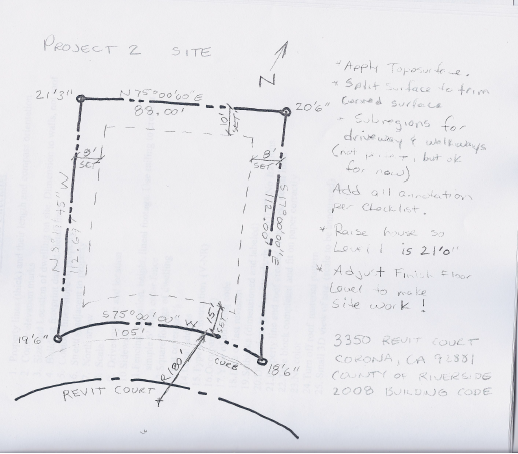 PROJECT 2 SITE
N
21'3"
N 75°00'00" E
88.00'
20'6"
10'
SET
8'
SET
8'
SET
112.00'
15'
SET
S 75°00'00" W
105'
19'6"
18'6"
CURB
R180'
REVIT COURT
* Apply Toposurface.
* Split surface to trim
Curved surface
- Subregions for
driveway & walkways
(not but ok
for now)
Add all annotation
per checklist.
* Raise house so
Level 1 is 21'0"
* Adjust Finish Floor
Level to make
site work!
3350 REVIT COURT
CORONA, CA 92881
COUNTY OF RIVERSIDE
2008 BUILDING CODE